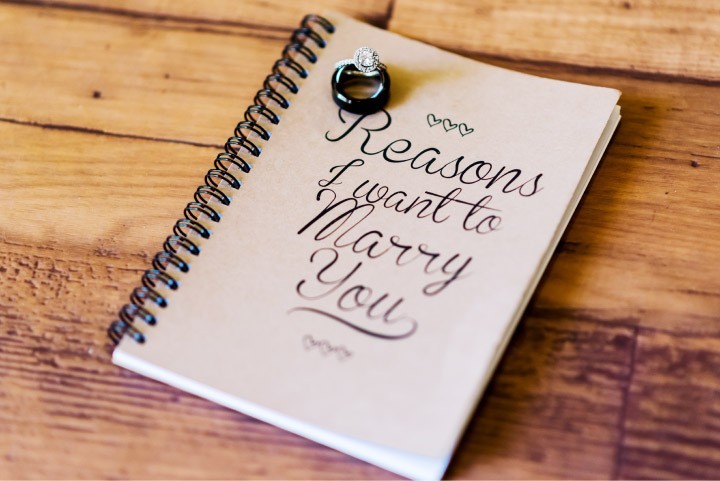 Reasons
I want to
Marry
You